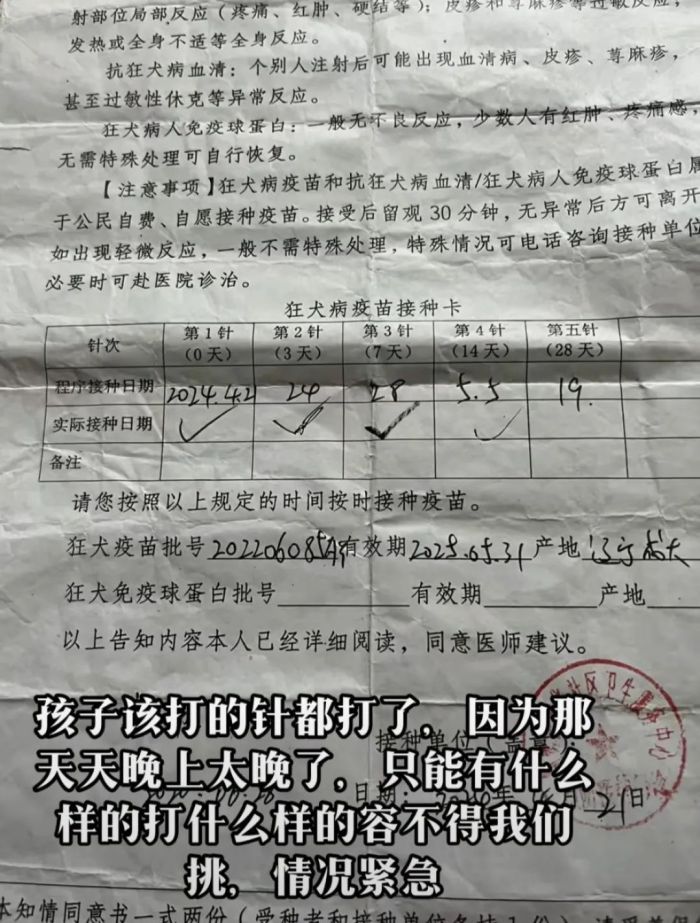 射部位局部反应（疼痛、红肿、硬结等）；皮疹和荨麻疹等过敏反应；
发热或全身不适等全身反应。
抗狂犬病血清：个别人注射后可能出现血清病、皮疹、荨麻疹，
甚至过敏性休克等异常反应。
狂犬病人免疫球蛋白：一般无不良反应，少数人有红肿、疼痛感，
无需特殊处理可自行恢复。
【注意事项】狂犬病疫苗和抗狂犬病血清/狂犬病人免疫球蛋白属
于公民自费、自愿接种疫苗。接受后留观30分钟，无异常后方可离开
如出现轻微反应，一般不需特殊处理，特殊情况可电话咨询接种单位
必要时可赴医院诊治。
狂犬病疫苗接种卡
针次 第1针（0天） 第2针（3天） 第3针（7天） 第4针（14天） 第五针（28天）
程序接种日期 2024.4.21 24 28 5.5 19.
实际接种日期 ✓ ✓ ✓ ✓
备注
请您按照以上规定的时间按时接种疫苗。
狂犬疫苗批号 有效期2025.05.31 产地 辽宁成大
狂犬免疫球蛋白批号 有效期 产地
以上告知内容本人已经详细阅读，同意医师建议。
社区卫生服务中心
接种单位（盖章）：
日期： 年 月21日
孩子该打的针都打了。因为那
天天晚上太晚了。只能有什么
样的打什么样的容不得我们
挑，情况紧急
本知情同意书一式两份（受种者和接种单位各持